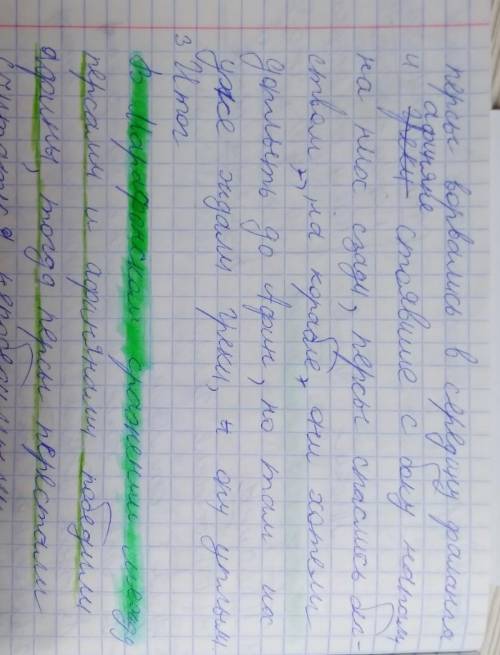 персы ворвались в середину фаланги
афиняне
и греки стоявшие с боку напали
на них сзади, персы спаслись бег-
ством, на корабле, они хотели
доплыть до Афин, но там их
уже ждали греки, и они уплыли
3 Итог
В Марафонском сражении между
персами и афинянами, победили
афины, тогда персы перестали
считаться непобедимыми